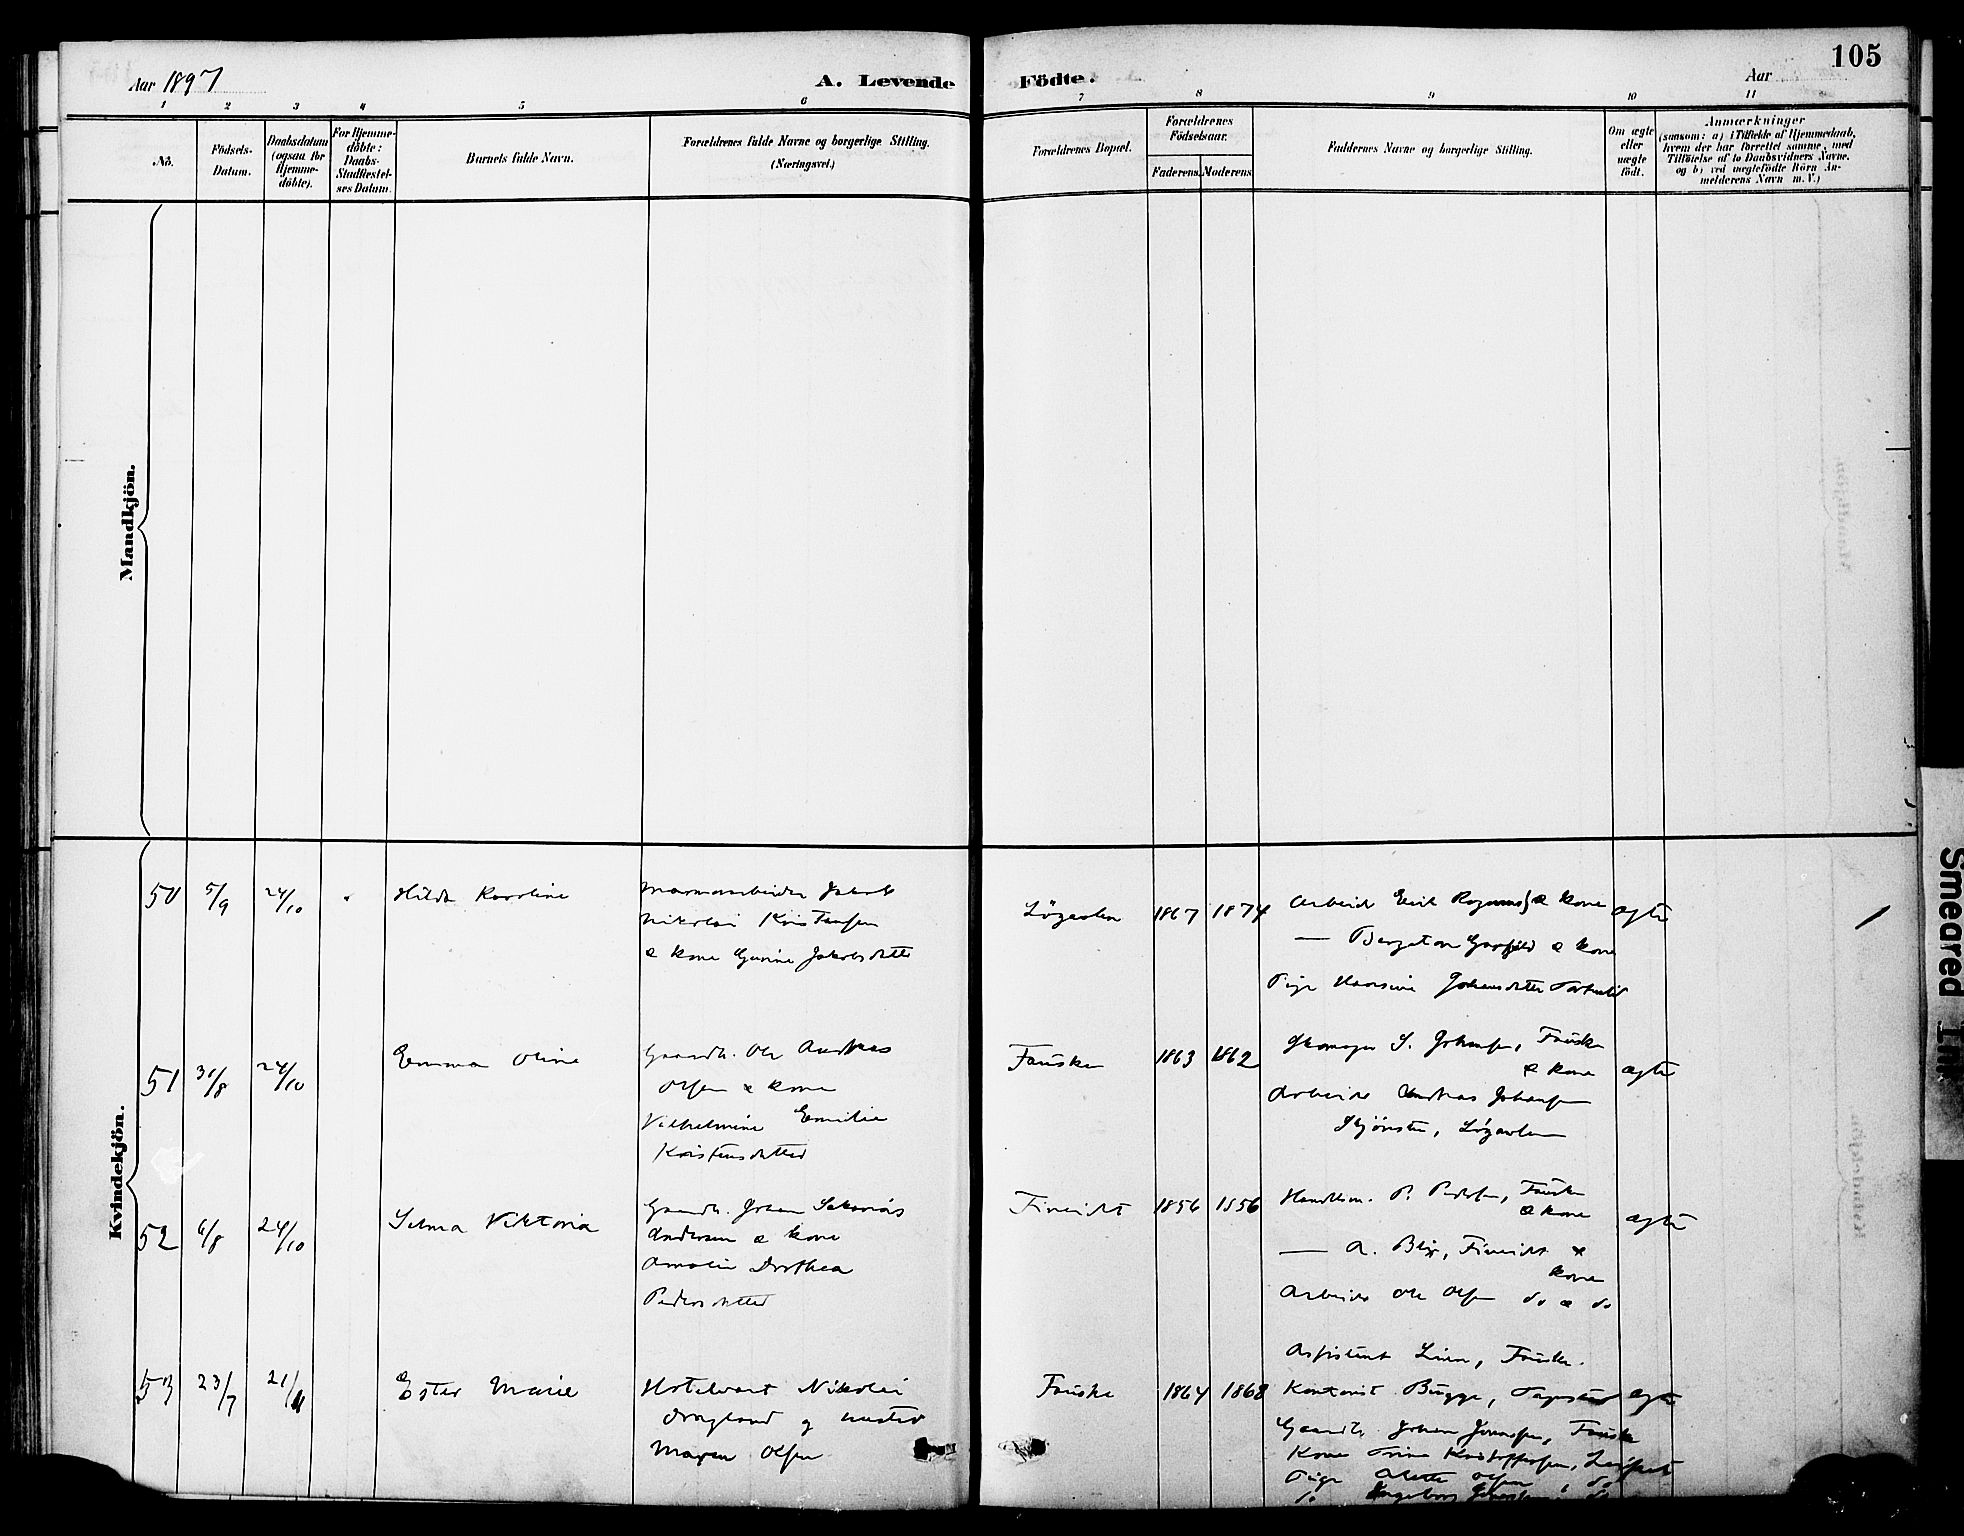 105
Aar 1897
A. Levende
Födte.
Aar
1 2 3 4 5 6
7 8 9 10 11
No.
Födsels-Datum.
Daabsdatum (ogsaa for Hjemme-döbte).
For Hjemme-döbte: Daabs-Stadfæstel-ses Datum.
Barnets fulde Navn.
Forældrenes fulde Navne og borgerlige Stilling.
(Næringsvei.)
Forældrenes Bopæl.
Forældrenes Födselsaar.
Faderens. Moderens.
Faddernes Navne og borgerlige Stilling.
Om ægte eller uægte födt.
Anmærkninger
(saasom: a) i Tilfælde af Hjemmedaab,
hvem der har forrettet samme, med
Tilföielse af to Daabsvidners Navne.
og b) ved uægtefödte Börn An-
melderens Navn m. V.)
Mandkjön.
Kvindekjön.
50 5/9 24/10 Hilda Karoline
Marmorarbeider Jakob
Nikolai Kristensen
& kone Gurine Jakobsdatter
Løgavlen 1867 1874
Arbeid. Erik & kone ægte
— & kone
Pige Hansine Johansdatter
51 31/8 24/10 Emma Oline
Gaardb. Ole Andreas
Olsen & kone
Vilhelmine Emilie
Kristensdatter
Fauske 1863 1862
Skomager S. Johansen, Fauske
& kone ægte
Arbeider Andreas Johansen
Skjønstu, Løgavlen
52 6/8 24/10 Selma Viktoria
Gaardb. Johan Sakarias
Andersen & kone
Amalie Dorthea
Pedersdatter
Fineidet 1856 1856
Handelsm. P. Pedersen, Fauske
& kone ægte
— A. Blix, Fineidet &
kone
Arbeider Ole Olsen do & do
53 23/7 21/11 Ester Marie
Hotelvært Nikolai
Dragland og hustru
Maren Olsen
Fauske 1864 1868
Assistent Lien, Fauske.
Kontorist Bugge, ægte
Gaardb. Johan Jonassen, Fauske
Kone Trine Kristoffersen,
Pige Olsen do
do Ingeborg
Smeared Ink